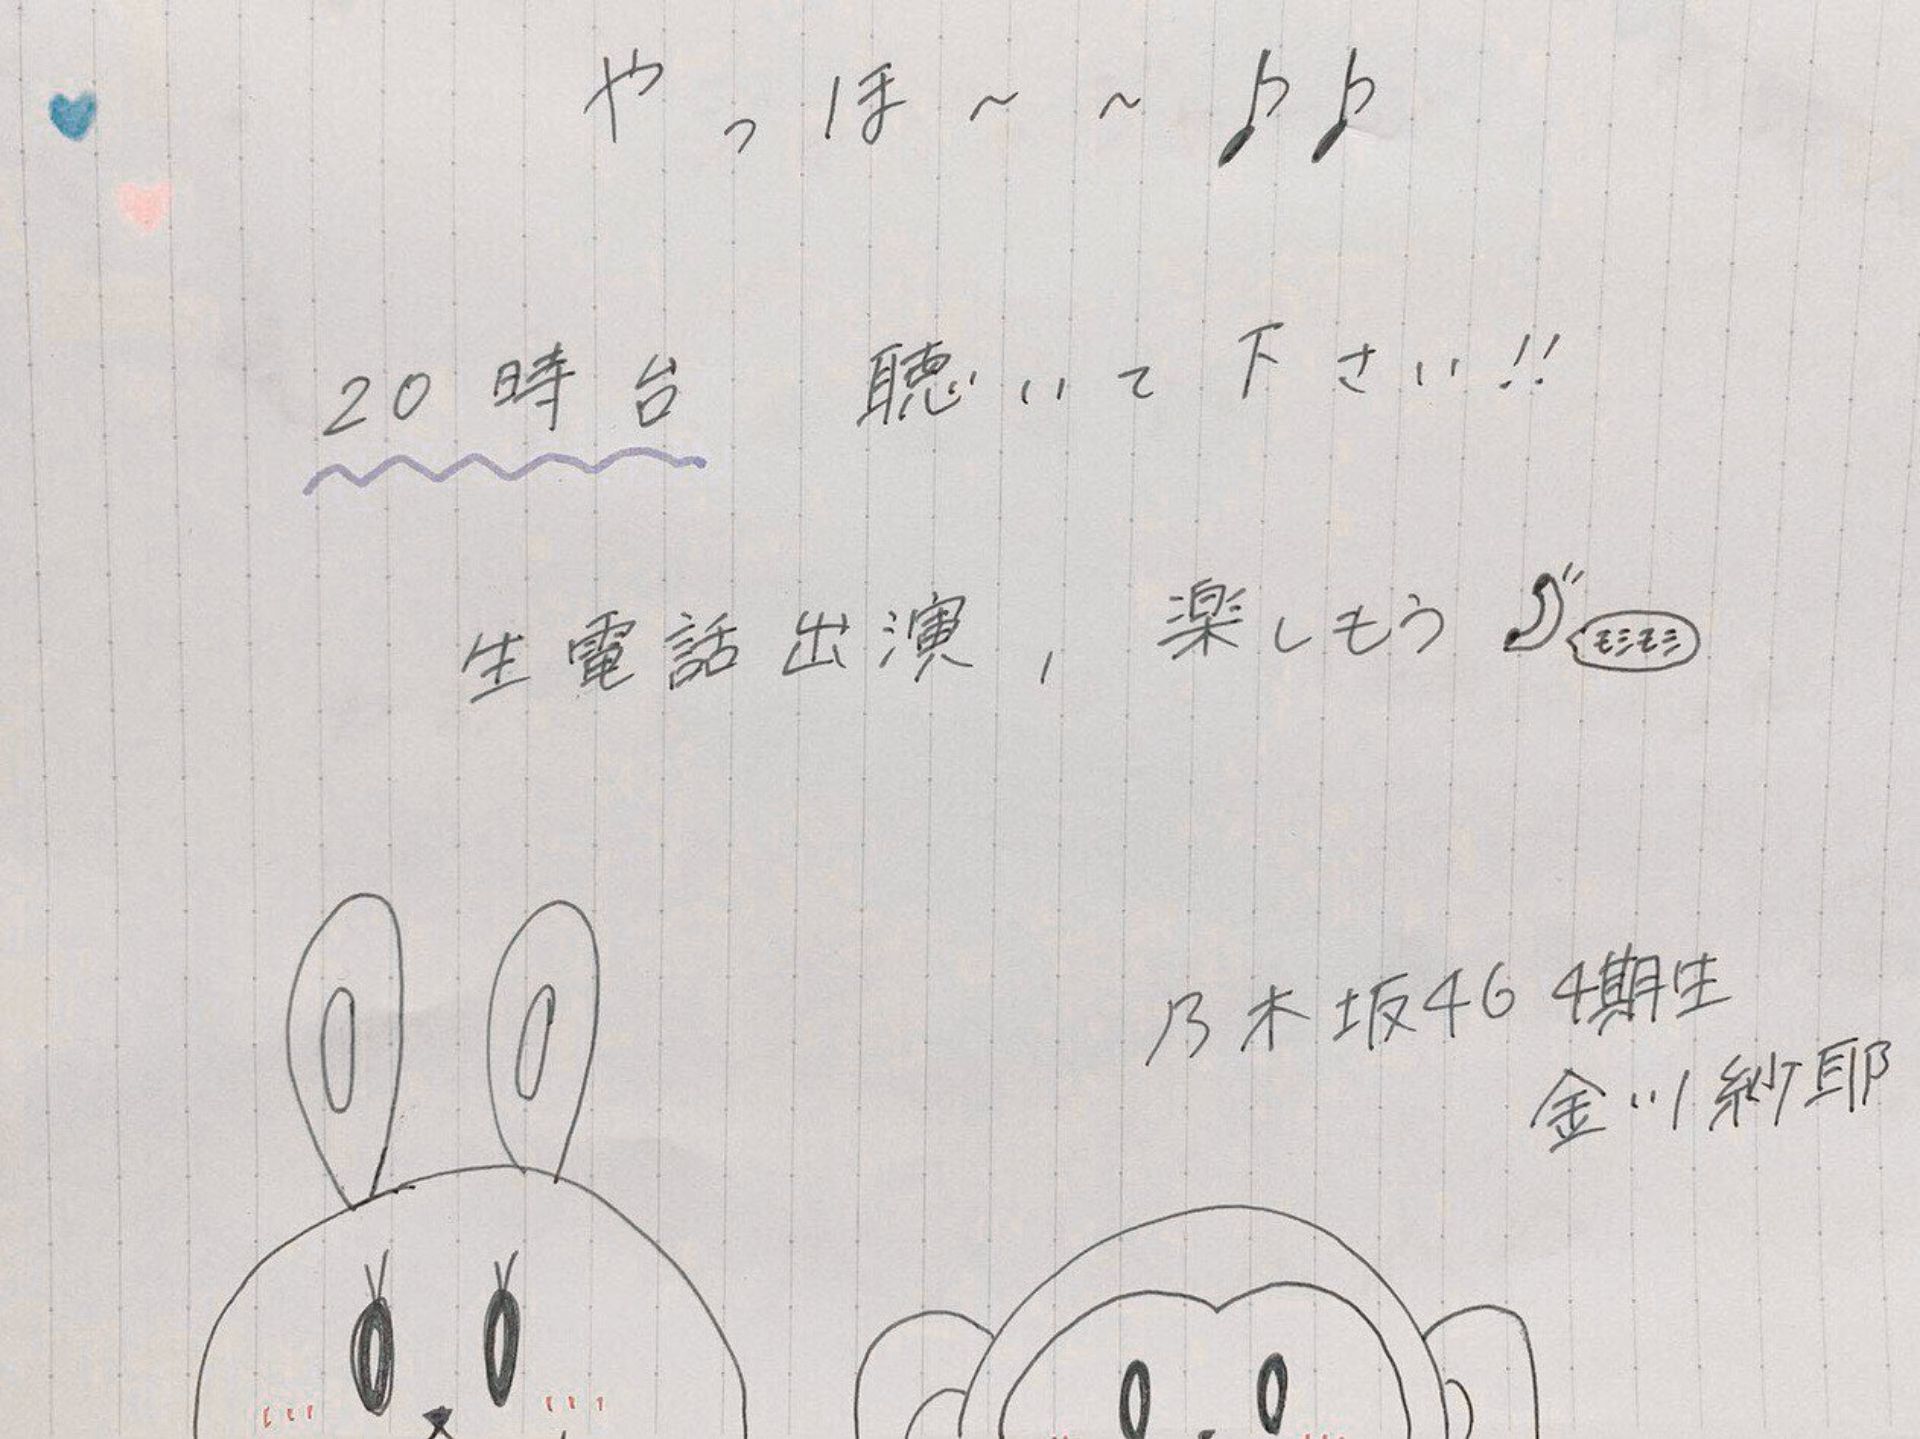 やっほ～～♪♪
20時台 聴いて下さい!!
生電話出演, 楽しもう
モシモシ
乃木坂46 4期生
金川紗耶